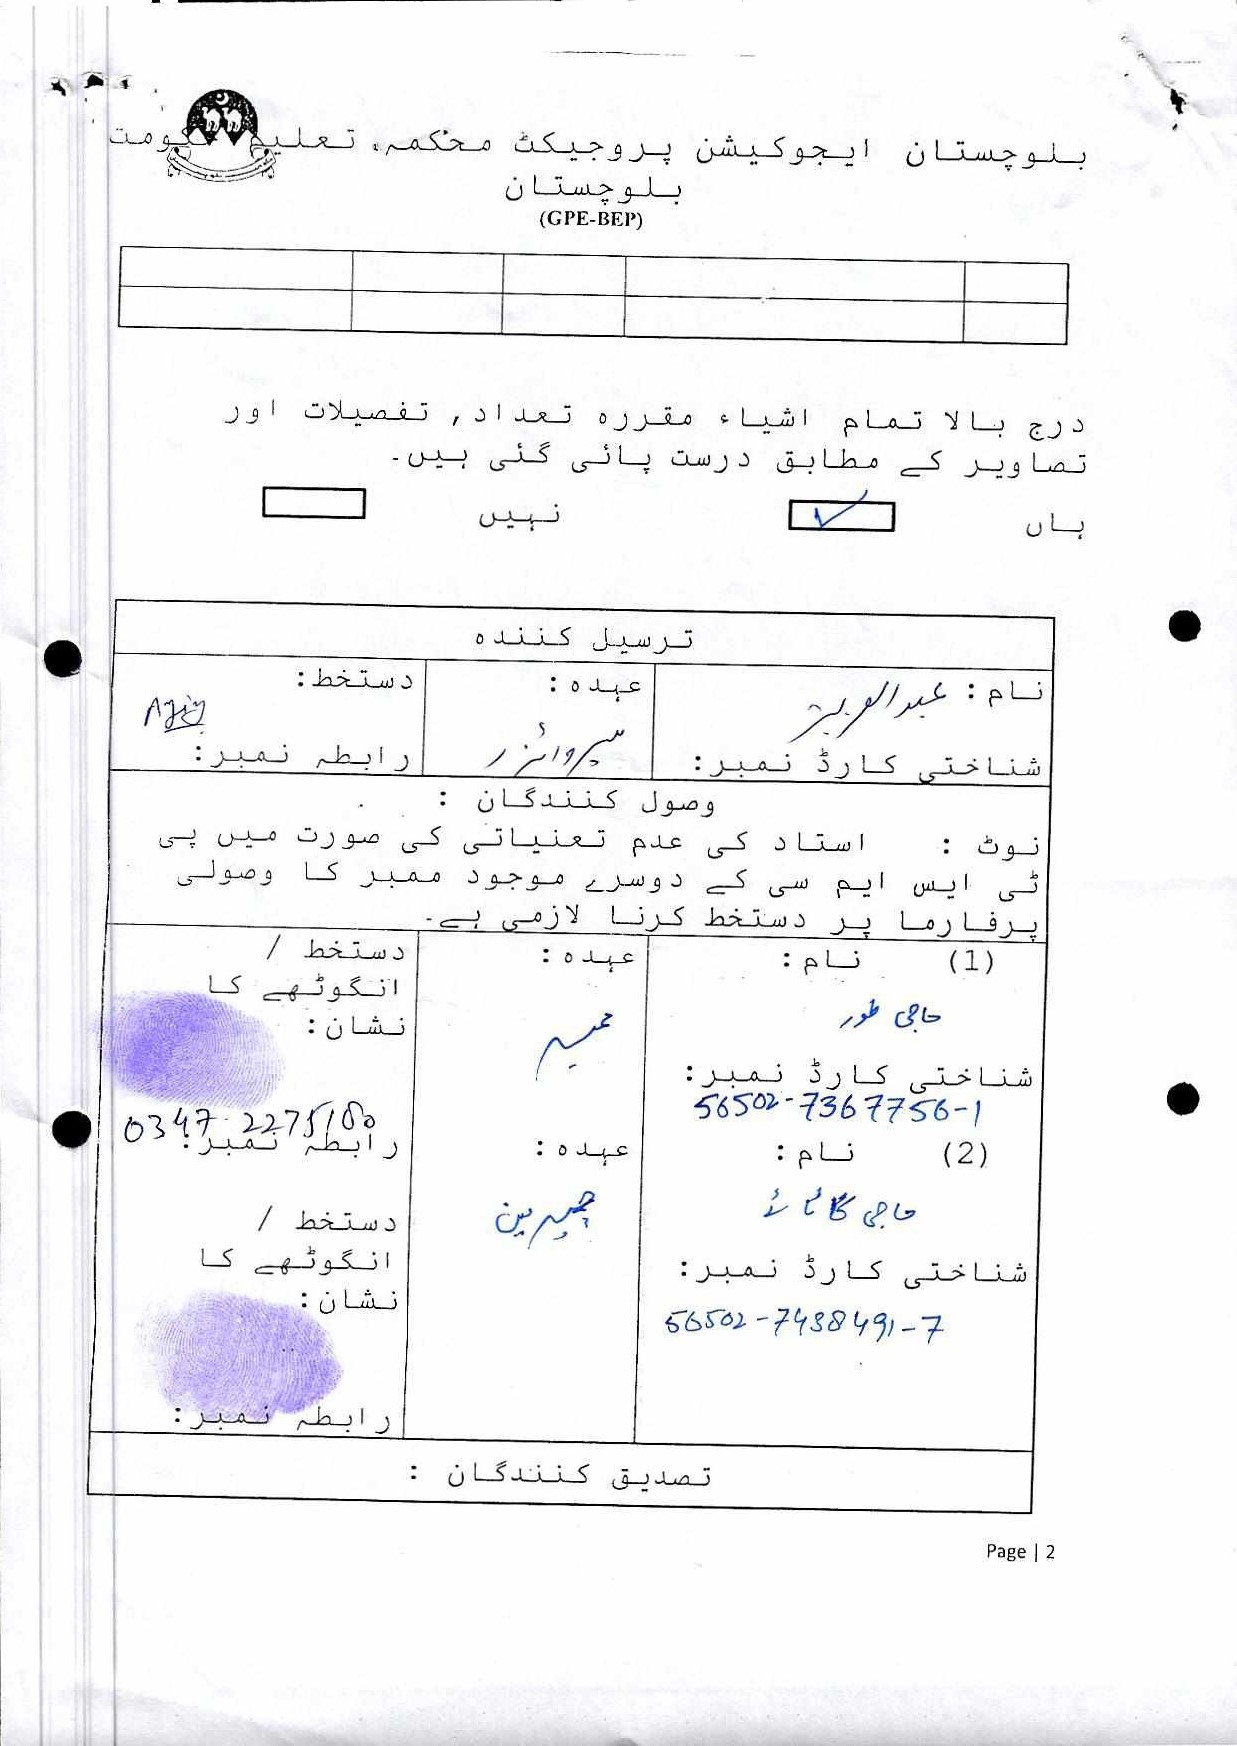 بلوچستان ایجوکیشن پروجیکٹ محکمہ تعلیم حکومت
بلوچستان
(GPE-BEP)
درج بالا تمام اشیاء مقررہ تعداد, تفصیلات اور
تصاویر کے مطابق درست پائی گئی ہیں۔
ہاں ✓ نہیں
ترسیل کنندہ
نام: عبدالعزیز عہدہ: سپروائزر دستخط:
شناختی کارڈ نمبر: رابطہ نمبر:
وصول کنندگان :
نوٹ : استاد کی عدم تعنیاتی کی صورت میں پی
ٹی ایس ایم سی کے دوسرے موجود ممبر کا وصولی
پرفارما پر دستخط کرنا لازمی ہے۔
(1) نام: عہدہ: دستخط /
انگوٹھے کا
نشان:
حاجی طور ممبر
شناختی کارڈ نمبر:
56502-7367756-1
0347-2275180
رابطہ نمبر:
(2) نام: عہدہ:
حاجی چیئرمین
دستخط /
انگوٹھے کا
نشان:
شناختی کارڈ نمبر:
56502-7438491-7
رابطہ نمبر:
تصدیق کنندگان :
Page | 2